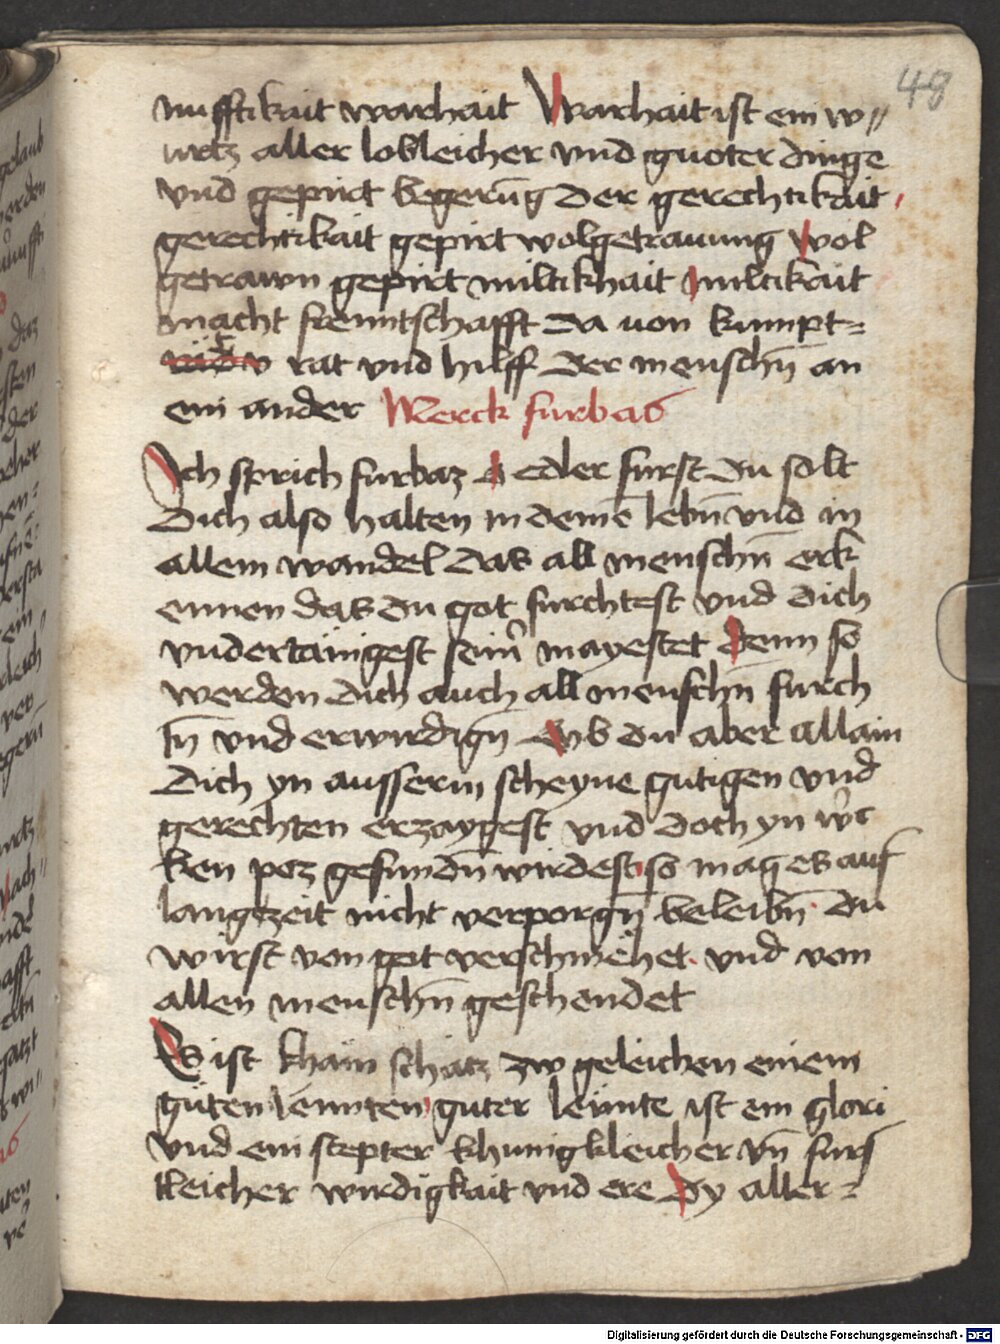 48
nufftikait warhait Warhait ist ein w〃
urtz aller lobleicher vnd guoter dinge
vnd gepirt begerūg der gerechtikait
gerechtikait gepirt wolgetrauung wol
getrawn gepirt miltikhait miltikait
macht frewntschafft da uon kumpt=
rat vnd hilff der menschn̄ an
ein ander Merck furbas
Ich sprich furbaz o edler furst du solt
dich also halten in deinē lebn̄ vnd in
allem wandel das all menschn̄ erk
ennen das du got furchtest vnd dich
vndertänigest mayestet denn so
werden dich auch all menschn̄ furch
tn̄ vnd erwirdign̄ du aber allain
dich yn ausserm scheyne gutigen vnd
gerechten erzaygest vnd doch yn
ken poz gefundn̄ wirdest so mag es auf
langzeit nicht verporgn̄ beleibn̄ du
wirst von got verschmehet vnd von
allen menschn̄ geschendet
Es ist khain schatz zw geleichen einem
guten lewnten guter leimte ist ein glori
vnd ein scepter khunigkleicher vn̄ furs
tleicher wirdigkait vnd ere Dy aller=
Digitalisierung gefördert durch die Deutsche Forschungsgemeinschaft - DFG